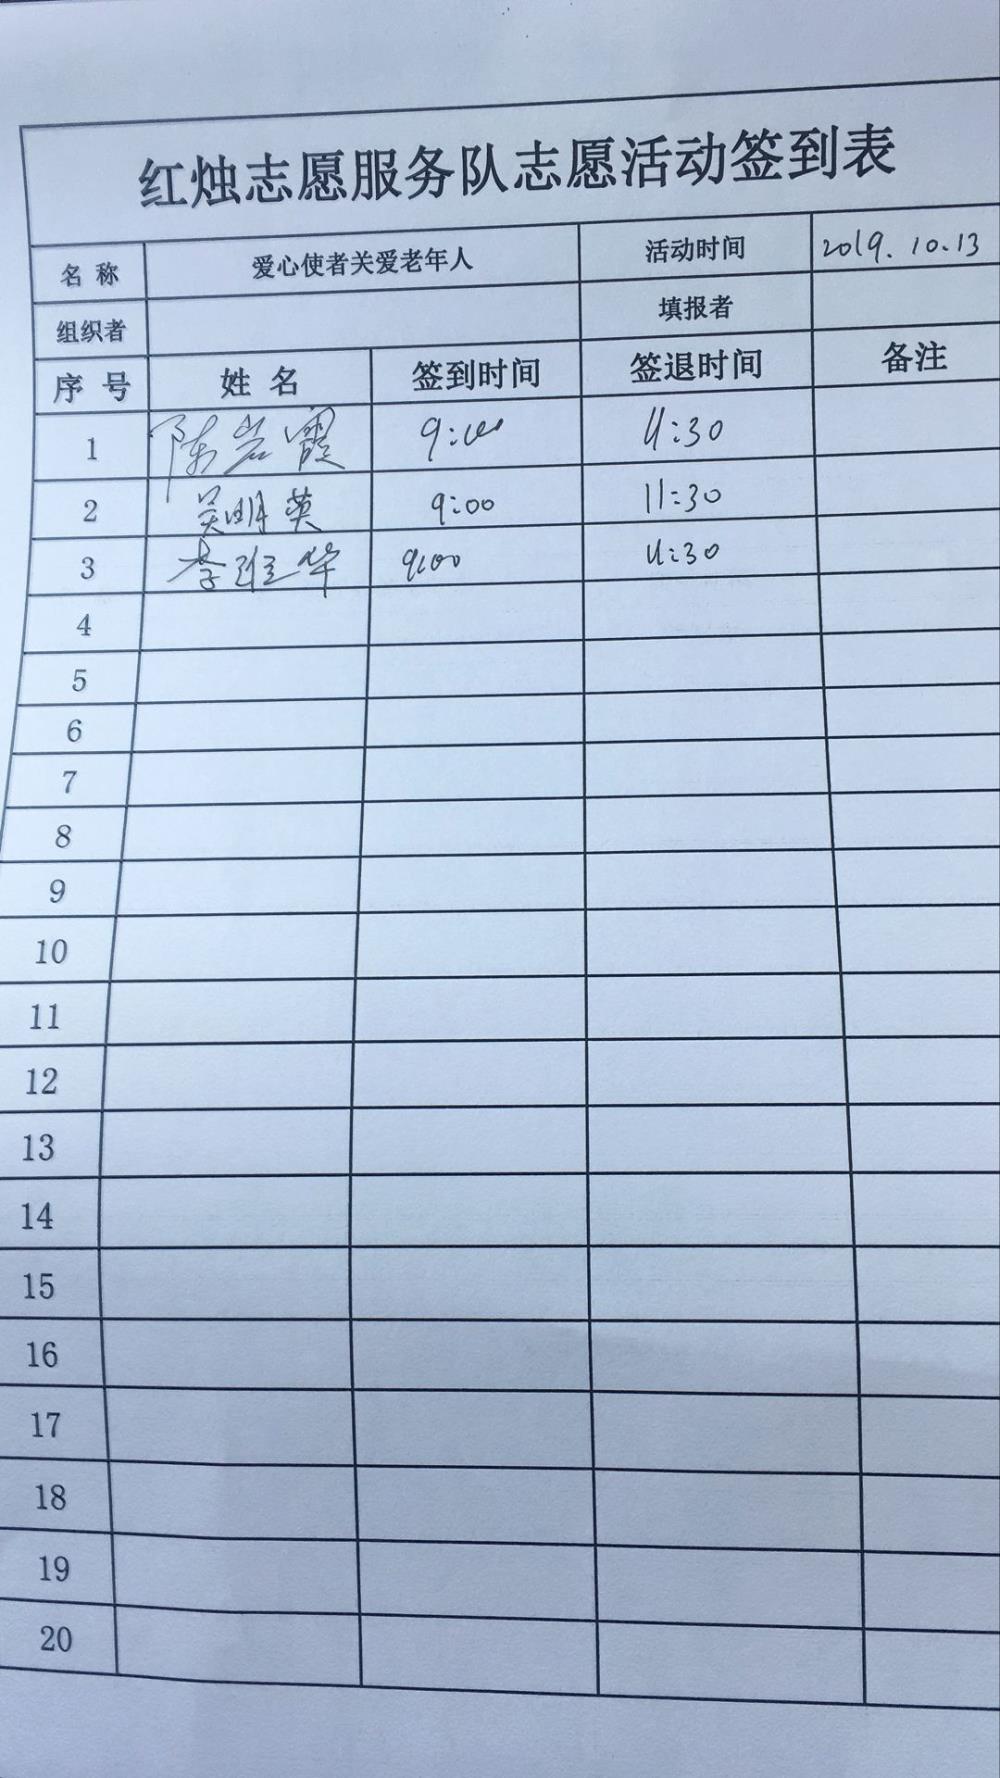 红烛志愿服务队志愿活动签到表
名 称 爱心使者关爱老年人 活动时间 2019.10.13
组织者 填报者
序 号 姓 名 签到时间 签退时间 备注
1 陈岩霞 9:00 11:30
2 吴明英 9:00 11:30
3 李维华 9:00 11:30
4
5
6
7
8
9
10
11
12
13
14
15
16
17
18
19
20